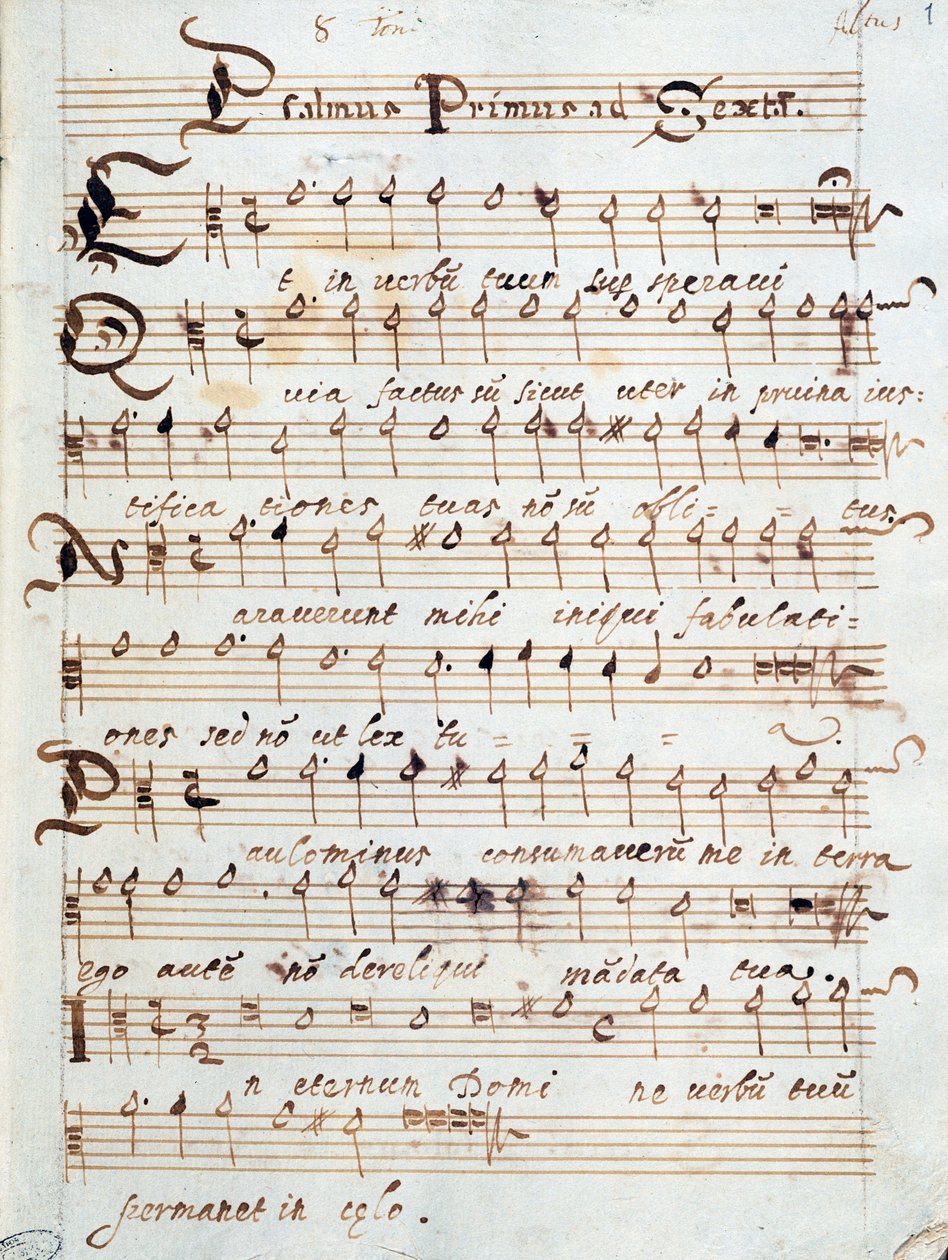 8 Toni Altus 1
Psalmus Primus ad Sextā.
Et in verbū tuum sup speraui
Quia factus sū sicut uter in pruina ius:
tifica tiones tuas nō sū obli = = tus.
Narauerunt mihi iniqui fabulati=
ones sed nō ut lex tu = = = a.
Paulominus consumauerū me in terra
ego autē nō dereliqui mādata tua.
In eternum Domi ne uerbū tuū
permanet in cęlo.